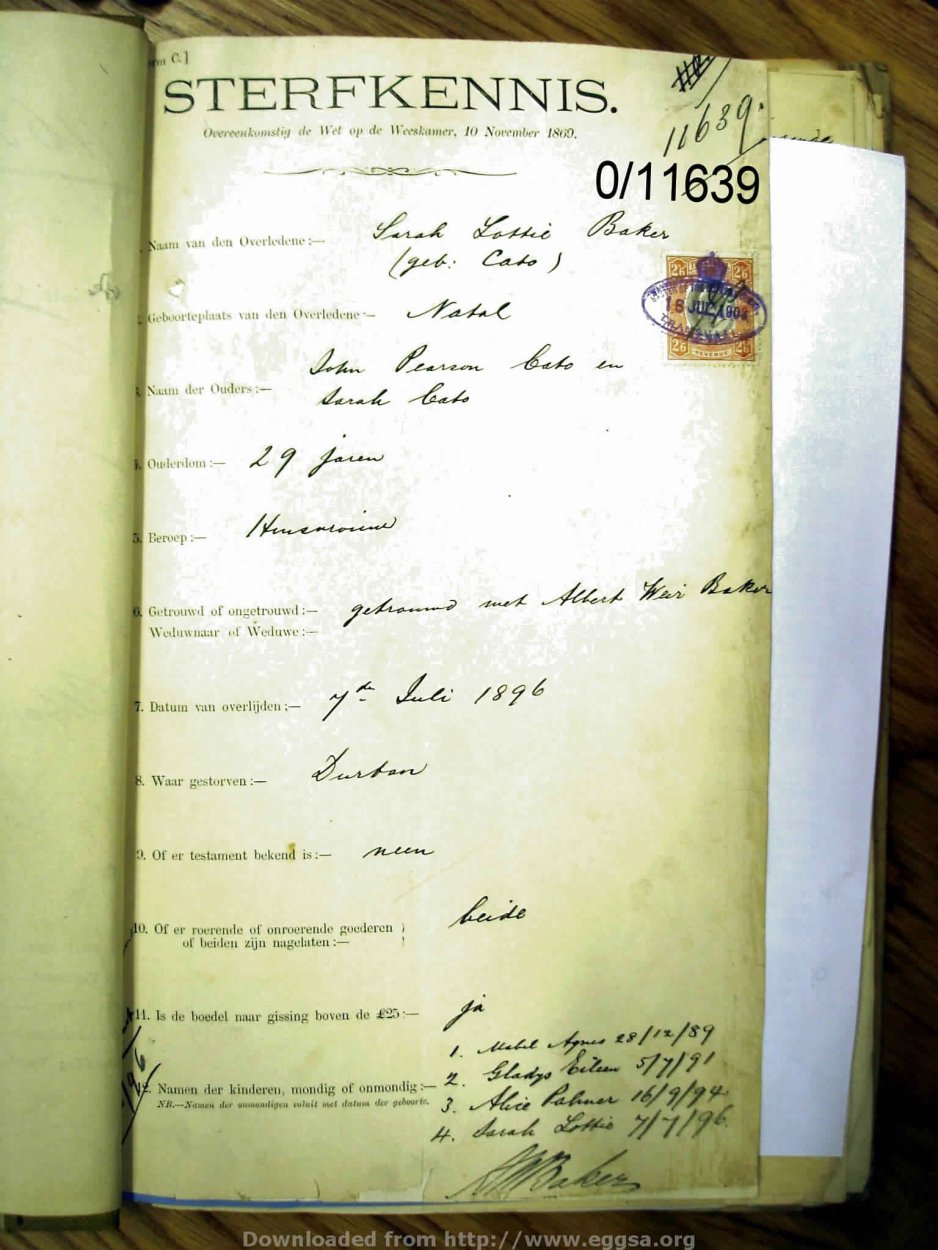 C.]
STERFKENNIS.
Overeenkomstig de Wet op de Weeskamer, 10 November 1869.
11639.
0/11639
Naam van den Overledene:— Sarah Lottie Baker
(geb: Cato)
26 26
16 JUL 1903
TRANSVAAL
26 REVENUE 26
Geboorteplaats van den Overledene— Natal
Naam der Ouders:— John Pearson Cato en
Sarah Cato
Ouderdom:— 29 jaren
5. Beroep:— Huisvrouw
6. Getrouwd of ongetrouwd:— getrouwd met Albert Weir Baker
Weduwnaar of Weduwe:—
7. Datum van overlijden:— 7de Juli 1896
8. Waar gestorven:— Durban
9. Of er testament bekend is:— neen
10. Of er roerende of onroerende goederen } beide
of beiden zijn nagelaten:—
11. Is de boedel naar gissing boven de £25:— ja
1. Mabel Agnes 28/12/89
12. Namen der kinderen, mondig of onmondig:— 2. Gladys Eileen 5/7/91
NB.—Namen der onmondigen voluit met datum der geboorte. 3. Alice Palmer 16/9/94
4. Sarah Lottie 7/7/96
AWBaker
Downloaded from http://www.eggsa.org